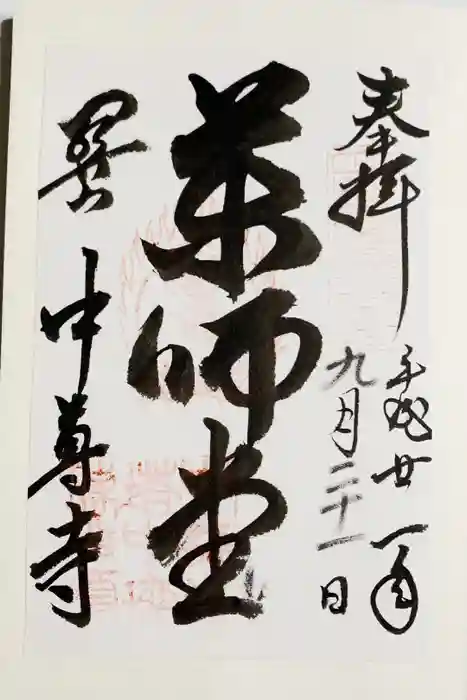 奉拝
平成廿一年
九月二十一日
薬師堂
関山 中尊寺